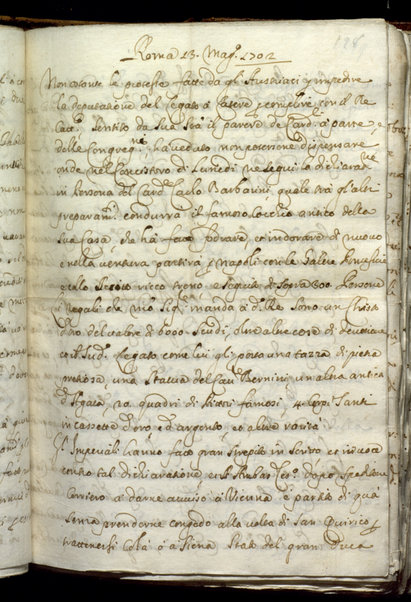 128
Roma 13. Mag.o 1702
Non ostante le proteste fatte da gli Austriaci p impedire
la deputazione del legato à latere p complire con il Re
Catt.o sentito da Sua S.tà il parere de Card.li à parte, e
delle Congreg.ni hà veduto non potersene dispensare
onde nel Concistoro di Lunedi ne seguì la dichiarad.ne
in persona del Card. Carlo Barbarini, quale trà gl'altri
preparam.ti condurrà il famoso Cocchio antico della
sua Casa che hà fatto foderare, et indorare di nuovo
e nella ventura partirà p Napoli con le Galere Pontificie
collo stesso ricco treno, e seguito di sopra 300. Persone
li regali che n'ro Sig.re manda à d.o Re sono un Christo
d'oro del valore di 6000 Scudi, oltre altre cose di devozione
et il Sud.o legato come lui gli porta una tazza di pietra
pretiosa, una statua del Cav.r Bernini un altra antica
d'Agata, 12 quadri di Pittori famosi, 4 Corpi Santi
in cassette d'oro ed argento, et altre rarità
Gl' Imperiali hanno fatto gran strepito in scritto et in voce
contro tal dichiaratione et l'Ambas.r Ces.o dopo spedito un
Corriero à darne avviso à Vienna è partito di quà
senza prenderne congedo alla volta di San Quirico p
trattenersi colà ò à Siena Stati del gran Duca